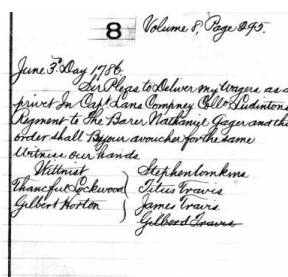 8 Volume 8, Page 295.
June 3d Day 1786
Sir Pleas to Deliver my Wagers as a
privet In Capt Lans Compney Collo Ludintons
Regment to The Barer Nathaniel Gager and this
order shall Be your avoucher for the same
Witness our hands
Wittnist Stephen Tomkins
Thancful Lockwood Titus Travis
Gilbert Horton James Travis
Gilberd Travis